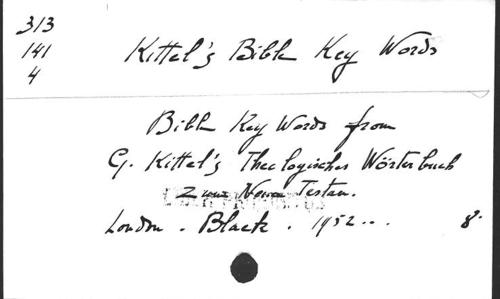 313
141
4
Kittel's Bible Key Words
Bible Key Words from
G. Kittel's Theologisches Wörterbuch
zum Neuen Testam.
London. Black. 1952... 8°